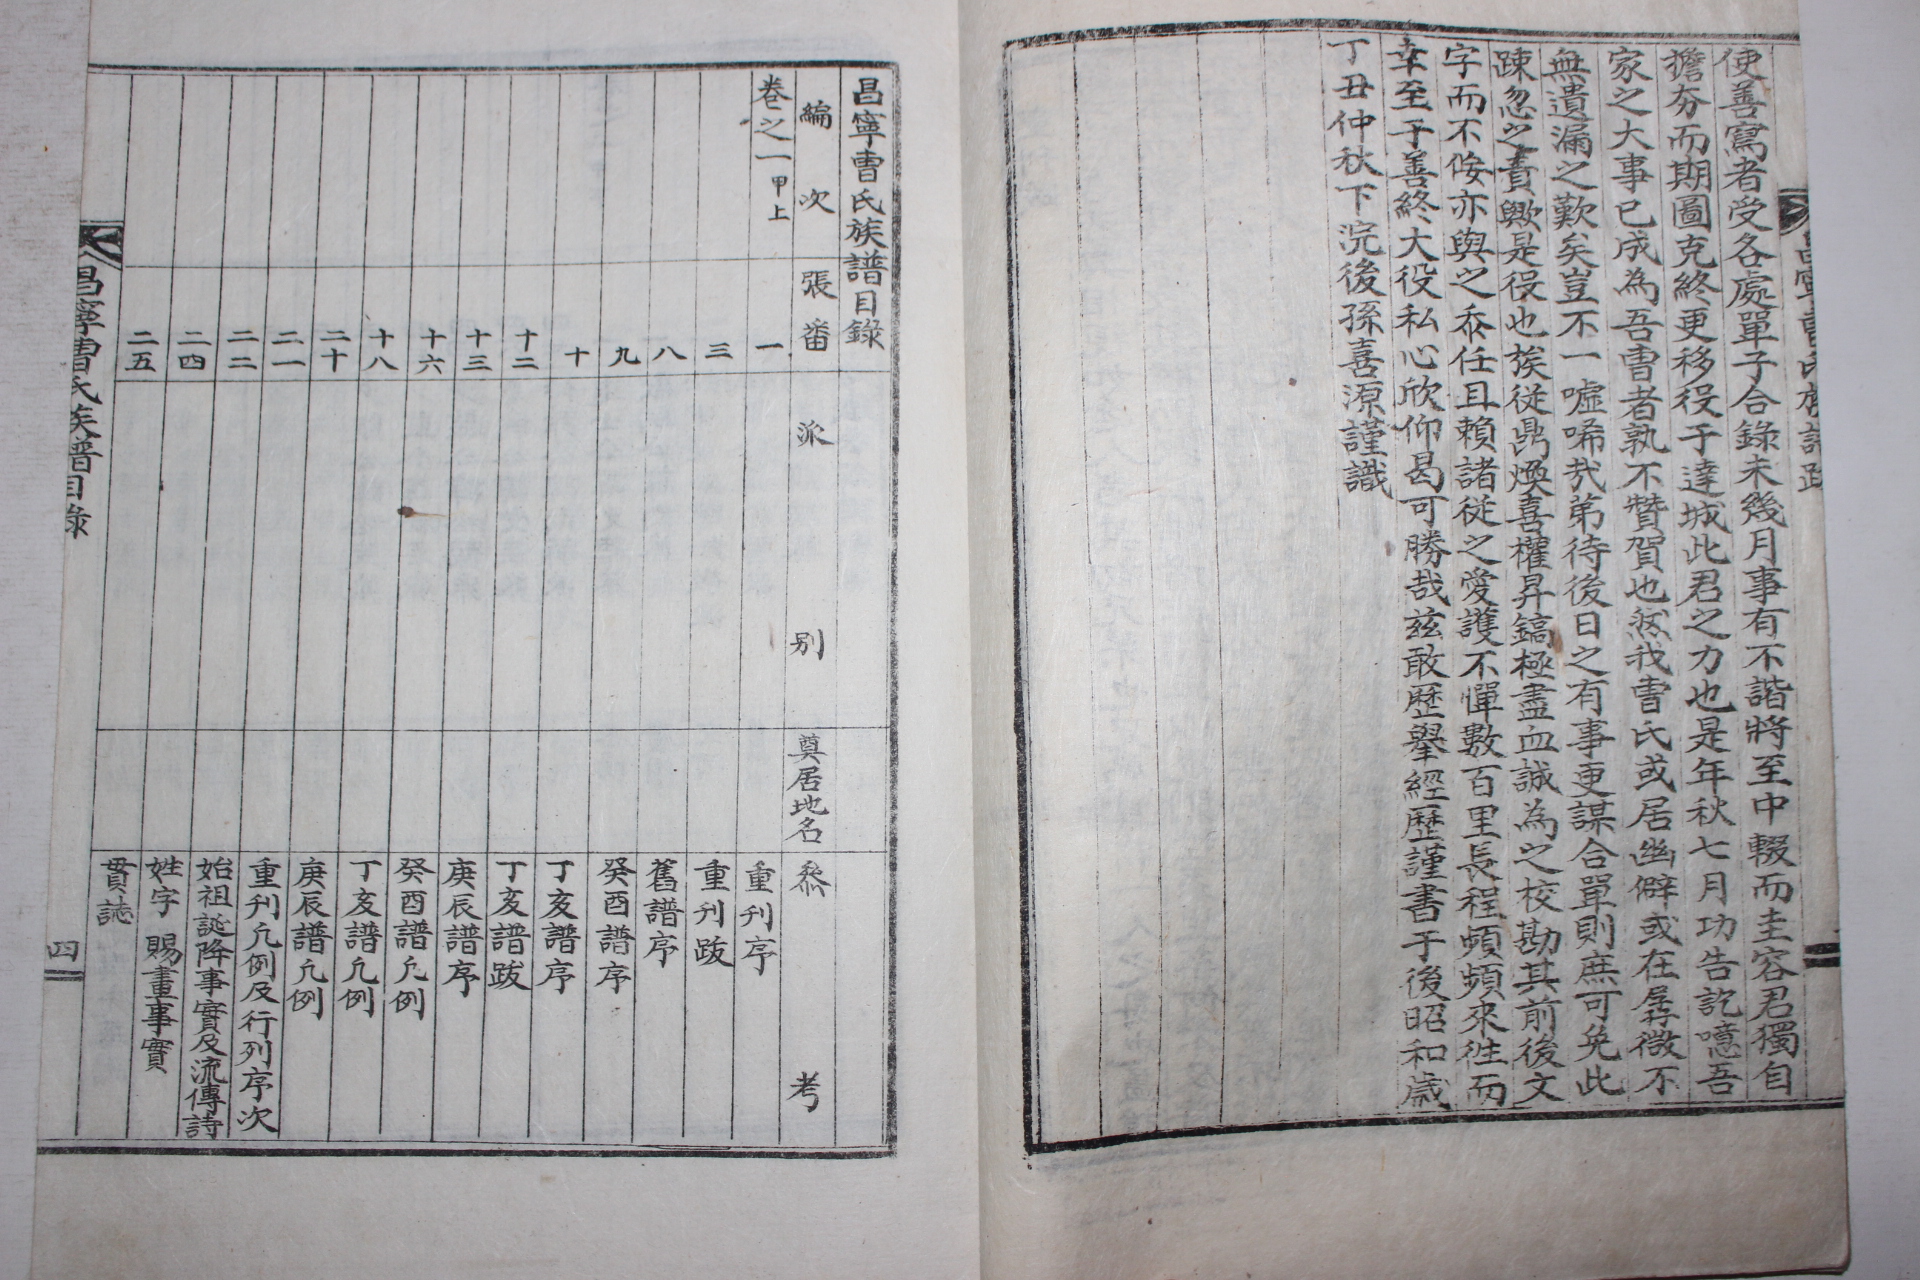 昌寧曺氏族譜跋
使善寫者受各處單子合錄未幾月事有不諧將至中輟而圭容君獨自
擔夯而期圖克終更移役于達城此君之力也是年秋七月功告訖噫吾
家之大事已成為吾曺者孰不贊賀也然我曺氏或居幽僻或在孱微不
無遺漏之歎矣豈不一噓唏哉第待後日之有事更謀合單則庶可免此
踈忽之責歟是役也族從鼎煥喜權昇鎬極盡血誠為之校勘其前後文
字而不佞亦與之忝任且賴諸從之愛護不憚數百里長程頻頻來往而
幸至于善終大役私心欣仰曷可勝哉玆敢歷擧經歷謹書于後昭和歲
丁丑仲秋下浣後孫喜源謹識
昌寧曺氏族譜目錄
編次 張番 派別 奠居地名 叅考
卷之一 甲上 一 重刊序
三 重刊跋
八 舊譜序
九 癸酉譜序
十 丁亥譜序
十二 丁亥譜跋
十三 庚辰譜序
十六 癸酉譜凡例
十八 丁亥譜凡例
二十 庚辰譜凡例
二一 重刊凡例及行列序次
二二 始祖誕降事實及流傳詩
二四 姓字 賜畫事實
二五 貫誌
昌寧曺氏族譜目錄 四